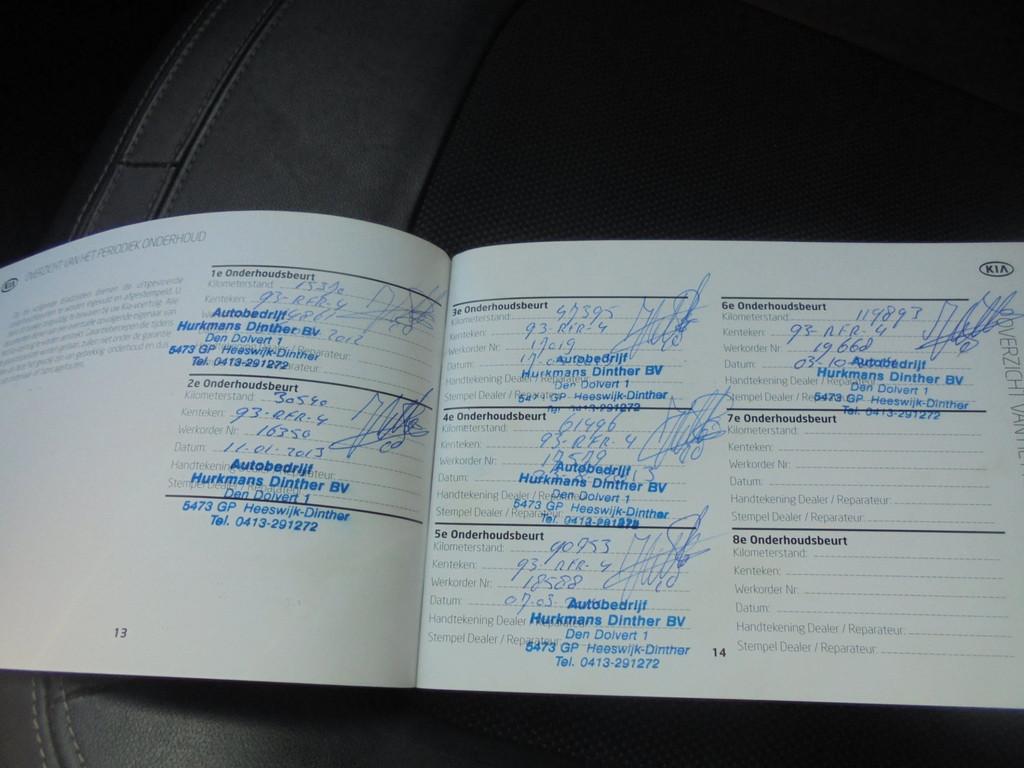 KIA
OVERZICHT VAN HET PERIODIEK ONDERHOUD
1e Onderhoudsbeurt
Kilometerstand:
Kenteken: 93-RFR-4
Autobedrijf
Hurkmans Dinther BV
Den Dolvert 1
5473 GP Heeswijk-Dinther
Tel. 0413-291272
2e Onderhoudsbeurt
Kilometerstand: 30590
Kenteken: 93-RFR-4
Werkorder Nr: 16350
Datum: 11-01-2013
Handtekening Dealer
Stempel Dealer /
Autobedrijf
Hurkmans Dinther BV
Den Dolvert 1
5473 GP Heeswijk-Dinther
Tel. 0413-291272
13
3e Onderhoudsbeurt
Kilometerstand: 47395
Kenteken: 93-RFR-4
Werkorder Nr: 17019
Datum:
Handtekening Dealer /
Stempel Dealer /
Autobedrijf
Hurkmans Dinther BV
Den Dolvert 1
5473 GP Heeswijk-Dinther
Tel. 0413-291272
4e Onderhoudsbeurt
Kilometerstand: 61496
Kenteken: 93-RFR-4
Werkorder Nr: 17529
Datum:
Handtekening Dealer /
Stempel Dealer / Reparateur:
Autobedrijf
Hurkmans Dinther BV
Den Dolvert 1
5473 GP Heeswijk-Dinther
Tel. 0413-291272
5e Onderhoudsbeurt
Kilometerstand: 90753
Kenteken: 93-RFR-4
Werkorder Nr: 18588
Datum: 07-03
Handtekening Dealer / Reparateur:
Stempel Dealer / Reparateur:
Autobedrijf
Hurkmans Dinther BV
Den Dolvert 1
5473 GP Heeswijk-Dinther
Tel. 0413-291272
14
KIA
6e Onderhoudsbeurt
Kilometerstand: 119893
Kenteken: 93-RFR-4
Werkorder Nr: 19668
Datum: 03-10
Handtekening Dealer / Reparateur:
Stempel Dealer /
Autobedrijf
Hurkmans Dinther BV
Den Dolvert 1
5473 GP Heeswijk-Dinther
Tel. 0413-291272
7e Onderhoudsbeurt
Kilometerstand:
Kenteken:
Werkorder Nr:
Datum:
Handtekening Dealer / Reparateur:
Stempel Dealer / Reparateur:
8e Onderhoudsbeurt
Kilometerstand:
Kenteken:
Werkorder Nr:
Datum:
Handtekening Dealer / Reparateur:
Stempel Dealer / Reparateur:
OVERZICHT VAN HET